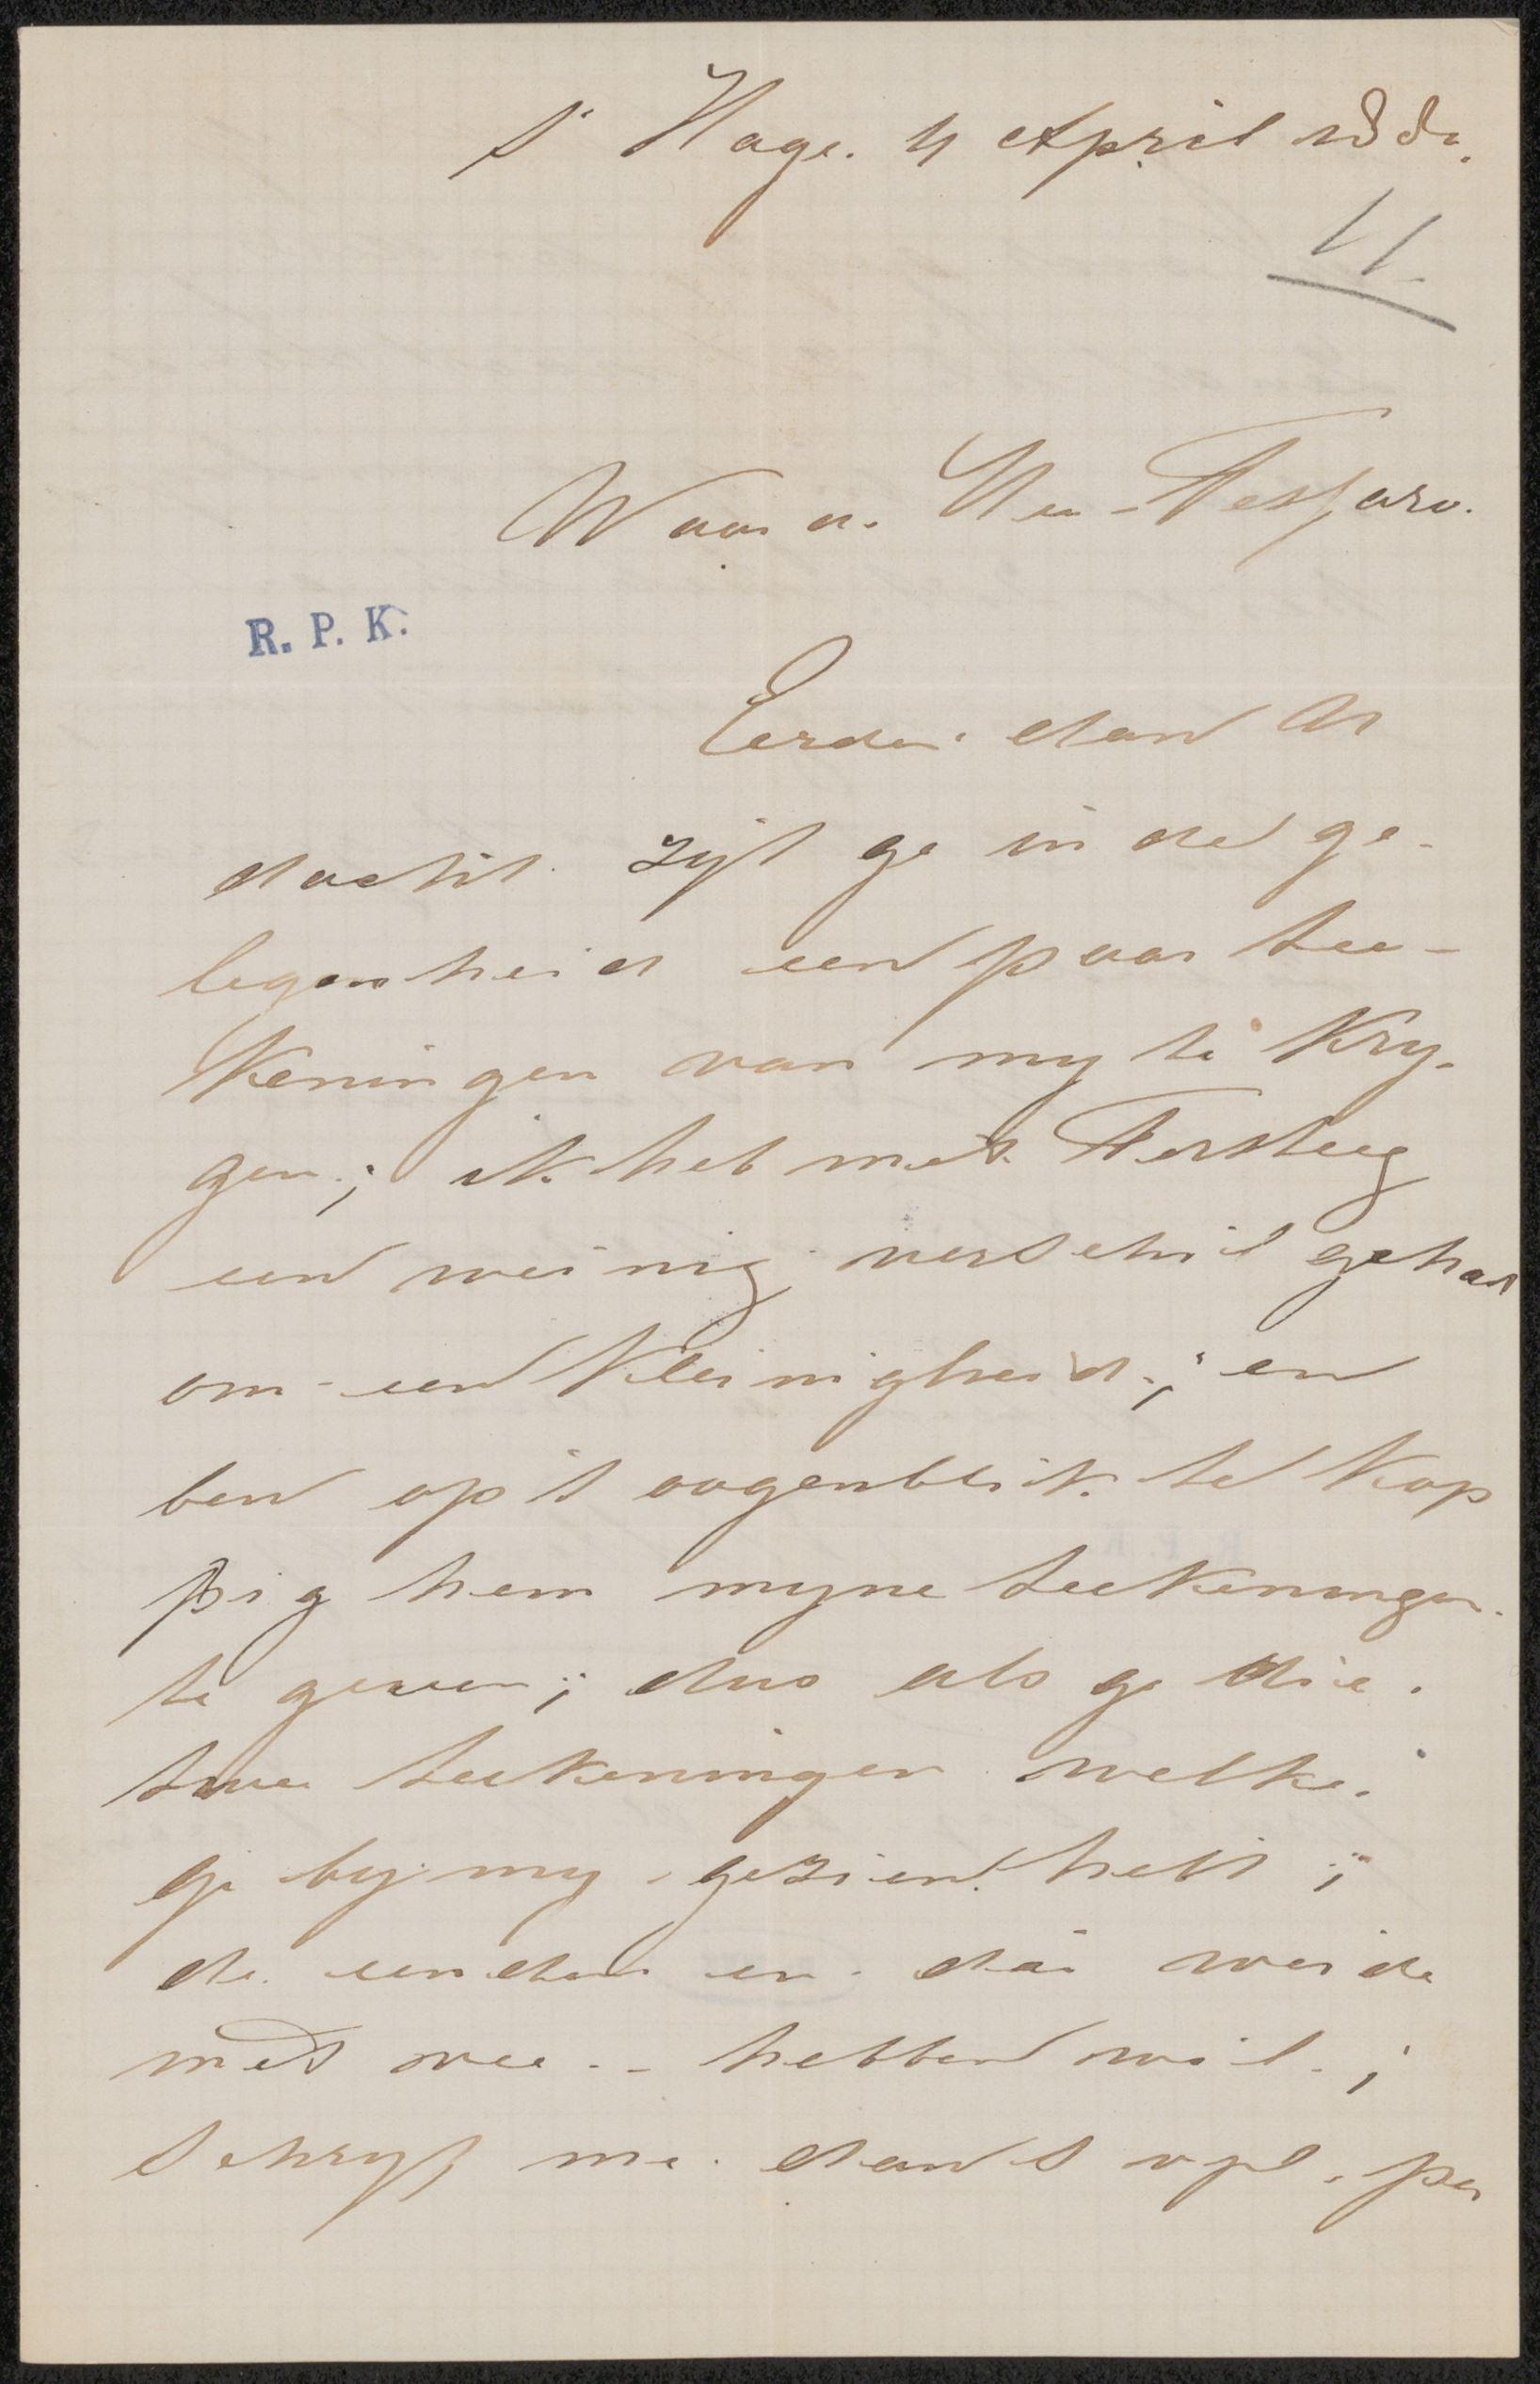 s' Hage. 4 April 188
11.
Waard. Heer Tessaro.
R. P. K.
Eerder dan ik
dacht zijt ge in de ge-
legenheid een paar tee-
keningen van my te kry-
gen; ik heb met Tersteeg
een weinig verschil gehad
om een kleinigheid; en
ben op 't oogenblik te kop
pig hem myne teekeningen
te geven; dus als ge die
twee teekeningen welke
ge by my gezien hebt;
de eenden en die weide
met vee -- hebben wil;
schryf me dan s v pl. per